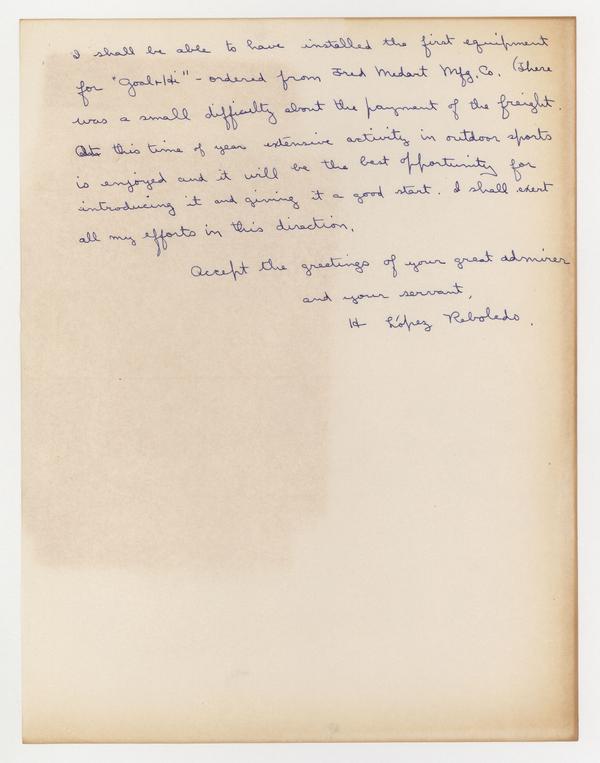 I shall be able to have installed the first equipment
for "Goal-Hi" - ordered from Fred Medart Mfg. Co. (There
was a small difficulty about the payment of the freight.
At this time of year extensive activity in outdoor sports
is enjoyed and it will be the best opportunity for
introducing it and giving it a good start. I shall exert
all my efforts in this direction.
Accept the greetings of your great admirer
and your servant,
H López Reboledo.